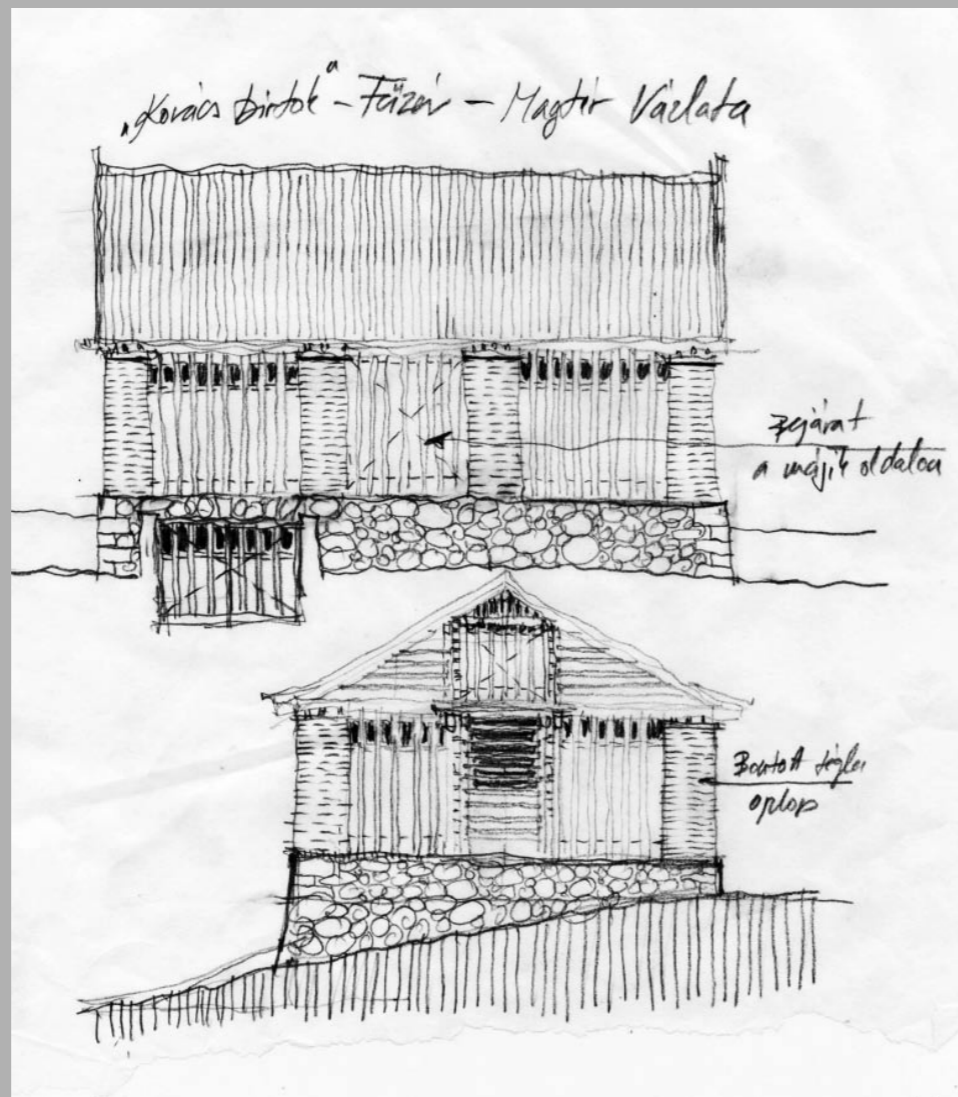 „Kovács birtok" - Füzér - Magtár Vázlata
Bejárat
a másik oldalon
Bontott tégla
oszlop